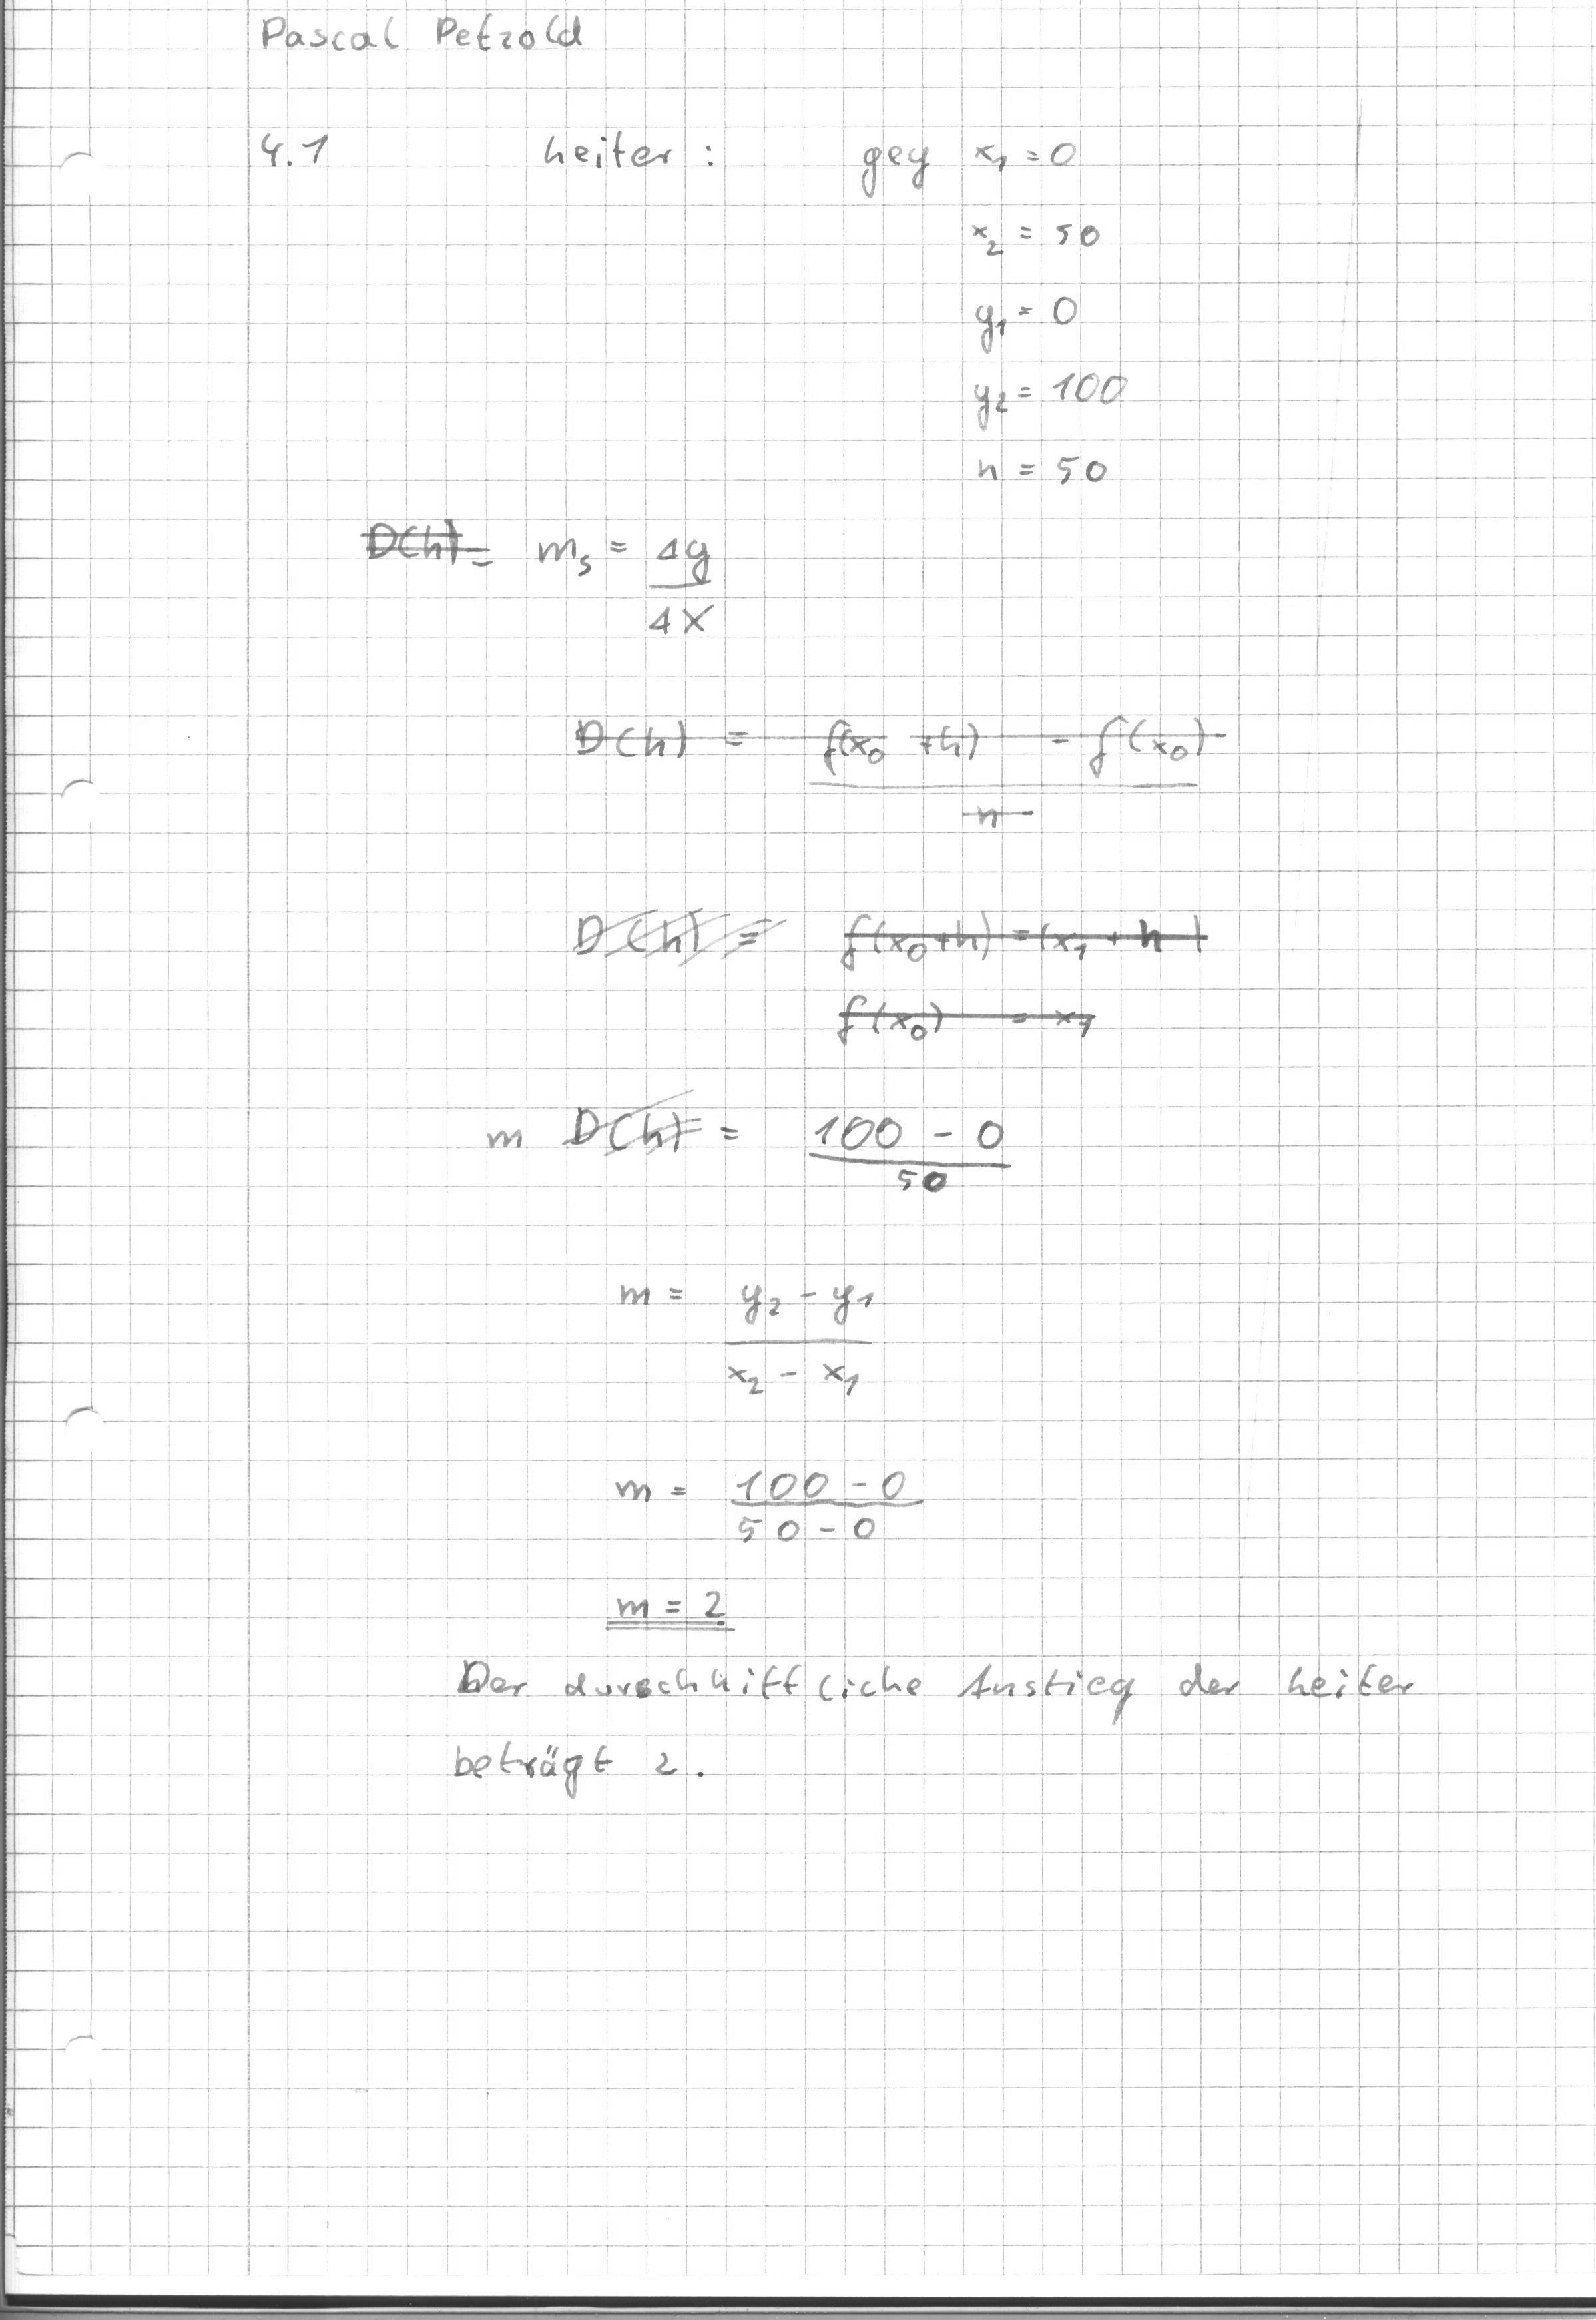 Pascal Petzold
4.1 Leiter : geg x₁ = 0
x₂ = 50
y₁ = 0
y₂ = 100
h = 50
D(h) = mₛ = Δy
ΔX
D(h) = f(x₀ + h) - f(x₀)
h
D(h) = f(x₀+h) = (x₁ + h )
f(x₀) = x₁
m D(h) = 100 - 0
50
m = y₂ - y₁
x₂ - x₁
m = 100 - 0
50 - 0
m = 2
Der durschnittliche Anstieg der Leiter
beträgt 2.